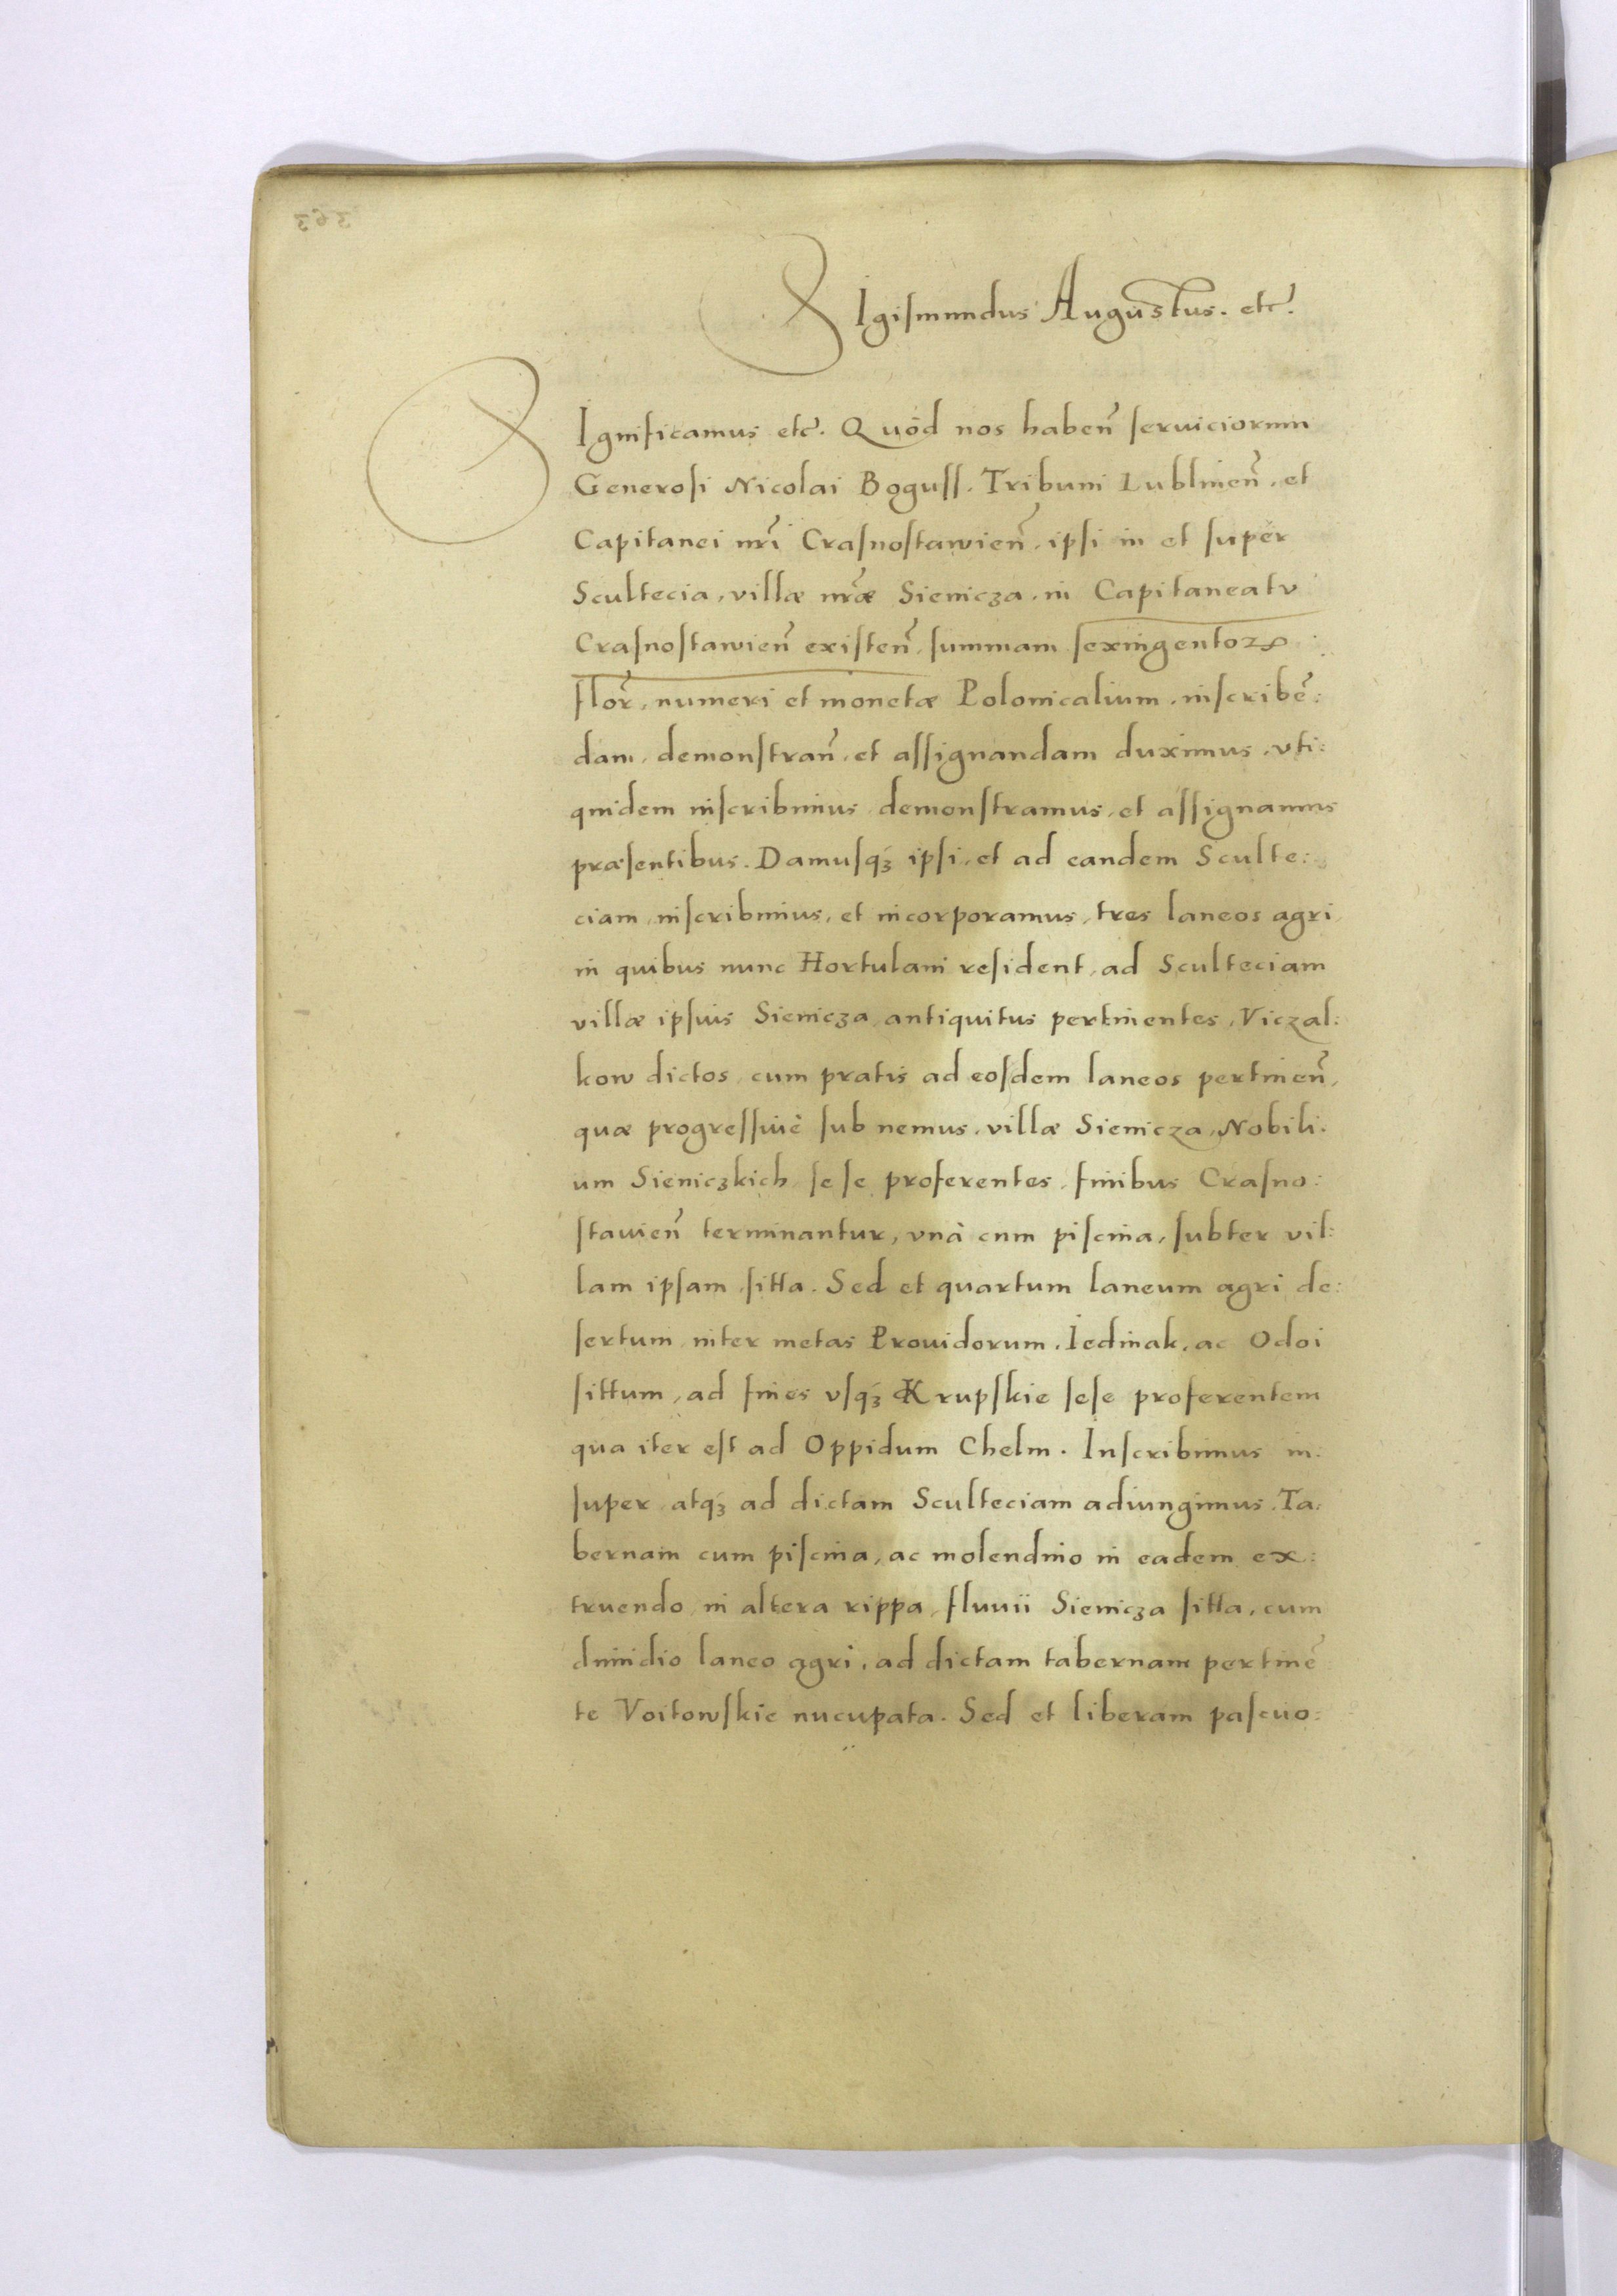 SIgiſmundus Augustus. etc.
SIgnificamus etc. Quòd nos haben̄ ſeruiciorum
Generoſi Nicolai Boguſſ. Tribuni Lublinen̄. et
Capitanei nrī Craſnoſtawien̄. ipſi in et ſuper
Scultecia, villæ nrǣ Sienicza, in Capitaneatu
Craſnoſtawien̄ exiſten̄, ſummam ſexingentoꝝ
flor̄, numeri et monetæ Polonicalium, inſcribē:
dam, demonſtran̄, et aſſignandam duximus, vti:
quidem inſcribimus demonſtramus, et aſſignamus
præſentibus. Damuſqꝫ ipſi, et ad eandem Sculte:
ciam, inſcribimus, et incorporamus, tres laneos agri
in quibus nunc Hortulani reſident, ad Sculteciam
villæ ipſius Sienicza antiquitus pertinentes, Viczal:
kow dictos, cum pratis ad eoſdem laneos pertinen̄,
quæ progreſſiuè ſub nemus, villæ Sienicza, Nobili:
um Sieniczkich ſe ſe proferentes, finibus Craſno:
ſtauien̄ terminantur, vnà cum piſcina, ſubter vil:
lam ipſam ſitta. Sed et quartum laneum agri de:
ſertum, inter metas Prouidorum, Iedinak, ac Odoi
ſittum, ad fines vſqꝫ Krupſkie ſeſe proferentem
qua iter eſt ad Oppidum Chelm. Inſcribimus in:
ſuper, atqꝫ ad dictam Sculteciam adiungimus, Ta:
bernam cum piſcina, ac molendino in eadem ex:
truendo, in altera rippa, fluuii Sienicza ſitta, cum
dimidio laneo agri, ad dictam tabernam pertinē
te Voitowſkie nucupata. Sed et liberam paſcuo: